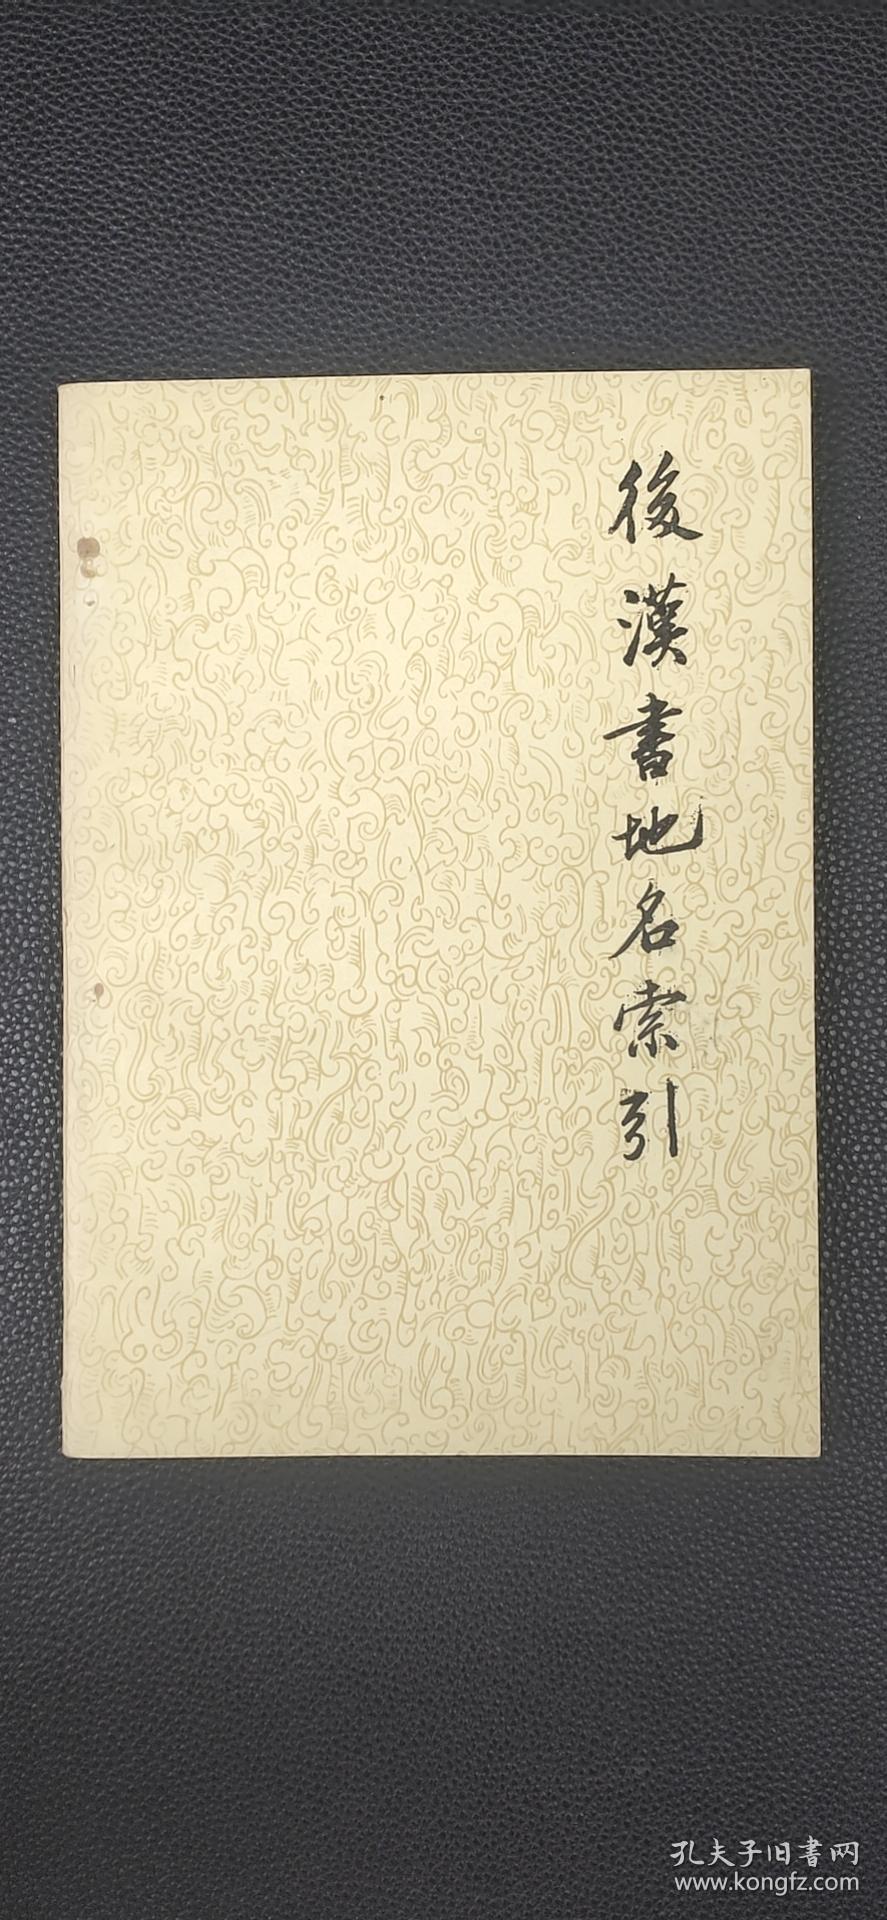 後漢書地名索引
孔夫子旧書网
www.kongfz.com